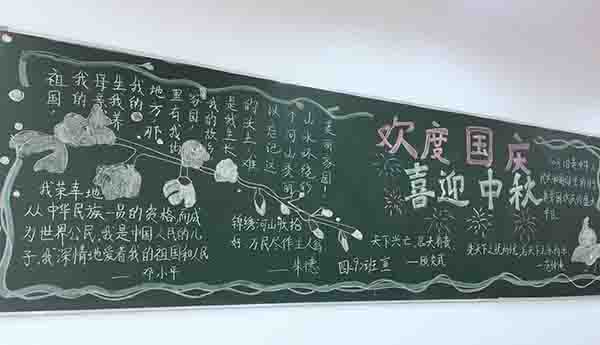 欢度国庆
喜迎中秋
祖国,
我的
母亲
生我养
我的
地方,那
里有我的
家园,
我的故乡
是我生长
的水土,难
以忘记这
山水环绕的
美丽家园!
我荣幸地
从中华民族一员的资格,而成
为世界公民,我是中国人民的儿
子,我深情地爱着我的祖国和人民
——邓小平
锦绣河山收拾
好 万民尽作主人翁
——朱德
四·9班宣
天下兴亡,匹夫有责
——顾炎武
先天下之忧而忧,后天下之乐而乐
——范仲淹